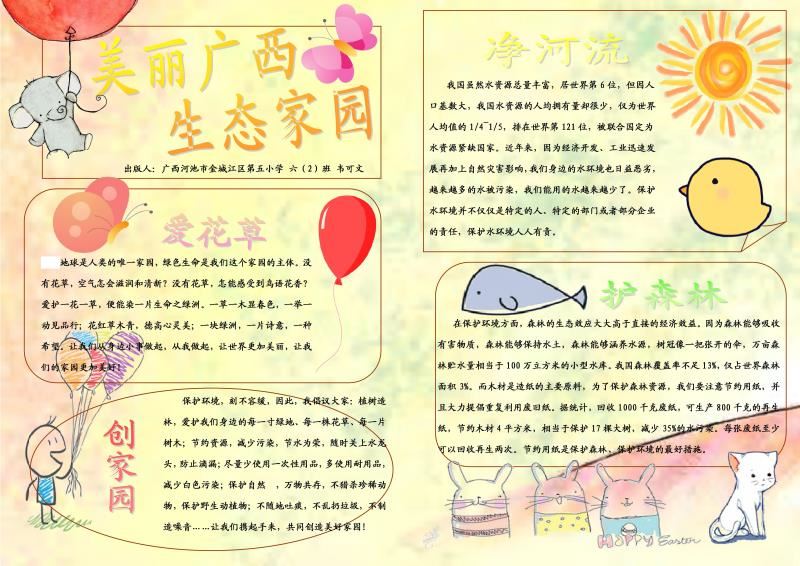 美丽广西
生态家园
出版人：广西河池市金城江区第五小学 六（2）班 韦可文
爱花草
地球是人类的唯一家园，绿色生命是我们这个家园的主体。没
有花草，空气怎会滋润和清新？没有花草，怎能感受到鸟语花香？
爱护一花一草，便能染一片生命之绿洲。一草一木显春色，一举一
动见品行；花红草木青，德高心灵美；一块绿洲，一片诗意，一种
希望。让我们从身边小事做起，从我做起，让世界更加美丽，让我
们的家园更加美好！
创家园
保护环境，刻不容缓，因此，我倡议大家：植树造
林，爱护我们身边的每一寸绿地、每一株花草，每一片
树木；节约资源，减少污染，节水为荣，随时关上水龙
头，防止滴漏；尽量少使用一次性用品，多使用耐用品，
减少白色污染；保护自然 ，万物共存，不猎杀珍稀动
物，保护野生动植物；不随地吐痰，不乱扔垃圾，不制
造噪音……让我们携起手来，共同创造美好家园！
净河流
我国虽然水资源总量丰富，居世界第 6 位，但因人
口基数大，我国水资源的人均拥有量却很少，仅为世界
人均值的 1/4~1/5，排在世界第 121 位，被联合国定为
水资源紧缺国家。近年来，因为经济开发、工业迅速发
展再加上自然灾害影响，我们身边的水环境也日益恶劣，
越来越多的水被污染，我们能用的水越来越少了。保护
水环境并不仅仅是特定的人、特定的部门或者部分企业
的责任，保护水环境人人有责。
护森林
在保护环境方面，森林的生态效应大大高于直接的经济效益，因为森林能够吸收
有害物质，森林能够保持水土，森林能够涵养水源，树冠像一把张开的伞，万亩森
林贮水量相当于 100 万立方米的小型水库。我国森林覆盖率不足 13%，仅占世界森林
面积 3%。而木材是造纸的主要原料，为了保护森林资源，我们要注意节约用纸，并
且大力提倡重复利用废旧纸。据统计，回收 1000 千克废纸，可生产 800 千克的再生
纸，节约木材 4 平方米，相当于保护 17 棵大树，减少 35%的水污染。每张废纸至少
可以回收再生两次。节约用纸是保护森林、保护环境的最好措施。
HAPPY Easter